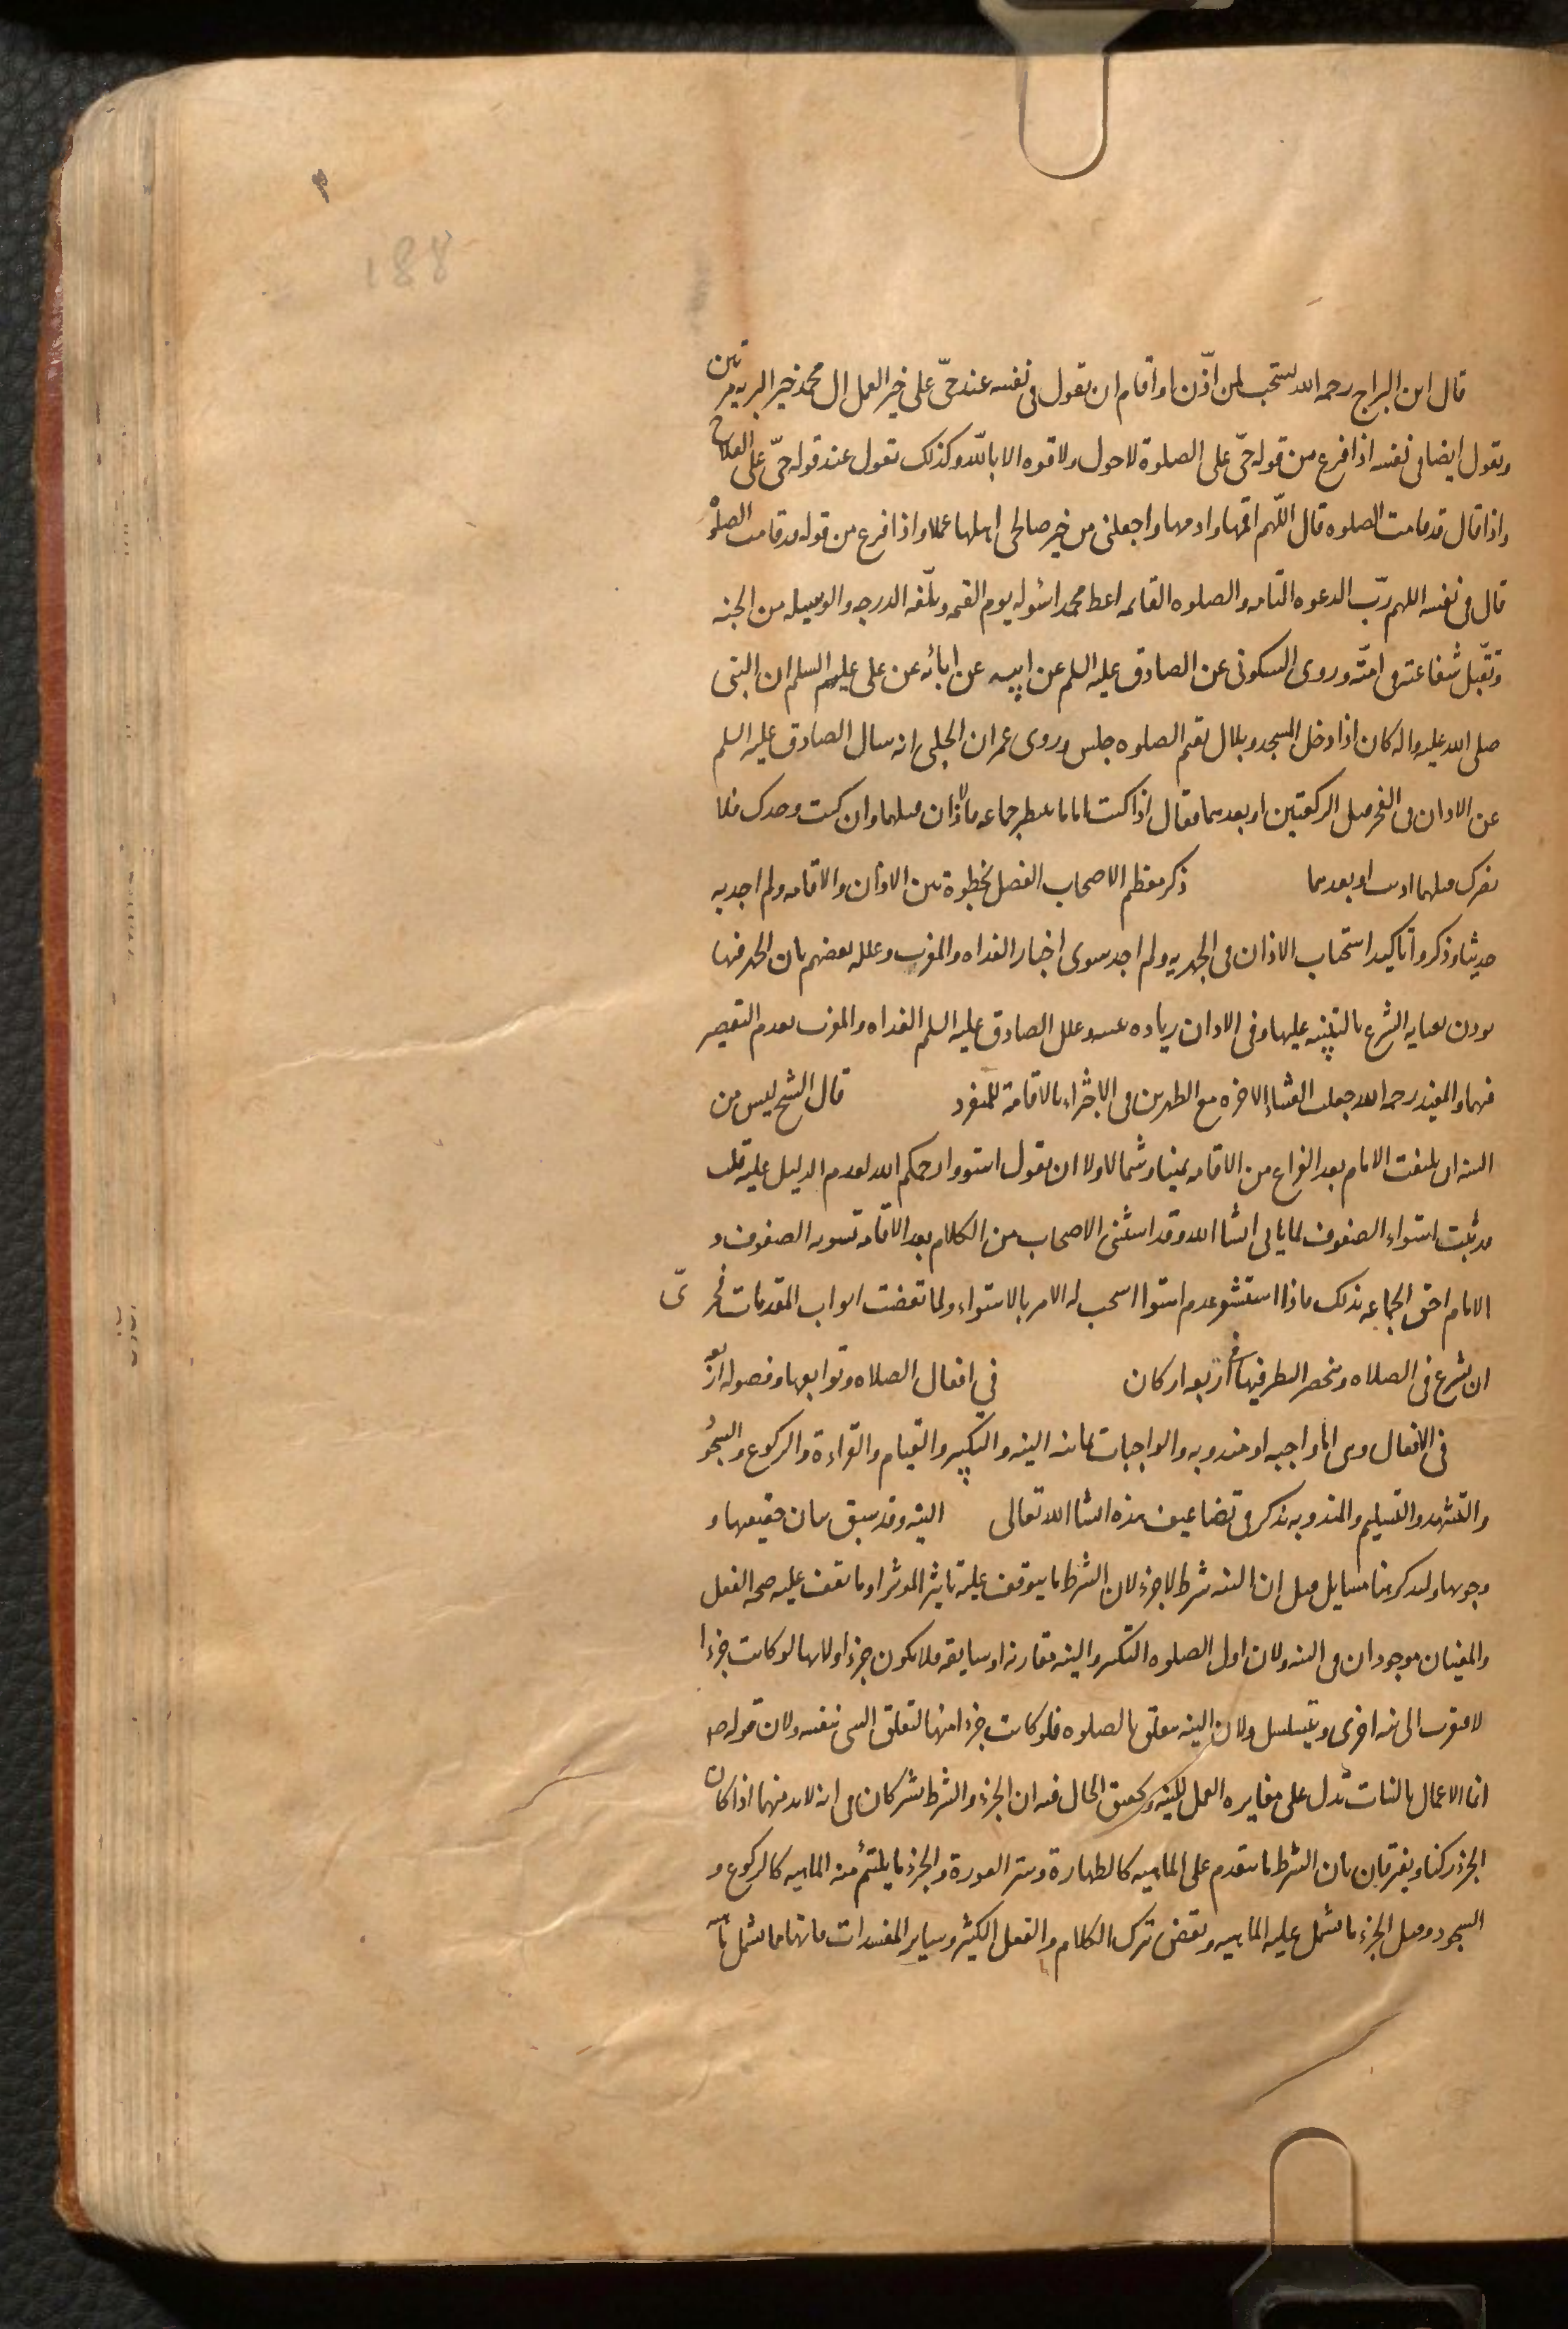 188
قال ابن البراج رحمه الله يستحب لمن اذّن او اقام ان يقول فى نفسه عند حىّ على خير العمل ال محمد خير البريه مرتين
ويقول ايضا فى نفسه اذا فرغ من قوله حىّ على الصلوة لا حول ولا قوه الا باللّه وكذلك يقول عند قوله حىّ على الفلاح
واذا قال قد قامت الصلوه قال اللّهم اقمها وادمها واجعلنى من خير صالحى اهلها عملا واذا فرغ من قوله قد قامت الصلوة
قال فى نفسه اللهم ربّ الدعوه التامه والصلوه القائمه اعط محمدا سؤله يوم القيمه وبلّغه الدرجه والوسيله من الجنه
وتقبّل شفاعته فى امّته وروى السكونى عن الصادق عليه السلم عن ابيه عن ابائه عن على عليهم السلم ان النبى
صلى الله عليه واله كان اذا دخل المسجد وبلال يقيم الصلوه جلس وروى عمران الحلبى انه سال الصادق عليه السلم
عن الاذان فى الفجر قبل الركعتين او بعدهما فقال اذا كنت اماما ينتظر جماعه فالاذان قبلهما وان كنت وحدك فلا
يضرك قبلهما اذنت او بعدهما ذكر معظم الاصحاب الفصل بخطوة بين الاذان والاقامه ولم اجد به
حديثا وذكروا تاكيد استحباب الاذان فى الجهريه ولم اجد سوى اخبار الغداه والمغرب وعلله بعضهم بان الجهر فيها
يوذن بعنايه الشرع بالتنبيه عليها وفى الاذان زياده تنبيه وعلل الصادق عليه السلم الغداه والمغرب بعدم التقصير
فيهما والمفيد رحمه الله جعل العشاء الاخره مع الظهرين فى الاجتزاء بالاقامة للمنفرد قال الشيخ ليس من
السنه ان يلتفت الامام بعد الفراغ من الاقامه يمينا وشمالا ولا ان يقول استووا رحمكم الله لعدم الدليل عليه قلت
قد ثبت استواء الصفوف لما ياتى انشا الله وقد استثنى الاصحاب من الكلام بعد الاقامه تسويه الصفوف و
الامام احق الجماعه بذلك فاذا استشعر عدم استوا استحب له الامر بالاستواء ولما تقضت ابواب المقدمات فحرىّ
ان يشرع فى الصلاه وينحصر النظر فيها فى اربعه اركان فى افعال الصلاه وتوابعها وفصوله اربعه
فى الافعال وهى اما واجبه او مندوبه والواجبات ثمانيه النيه والتكبير والقيام والقراءة والركوع والسجود
والتشهد والتسليم والمندوبه تذكر فى تضاعيف هذه انشا الله تعالى النيه وقد سبق بيان حقيقتها و
وجوبها ولنذكر هنا مسايل قيل ان النيه شرط لا جزء لان الشرط ما يتوقف عليه تاثير المؤثر او ما يقف عليه صحه الفعل
والمعنيان موجودان فى النيه ولان اول الصلوه التكبير والنيه مقارنه او سابقه فلا يكون جزءا ولانها لو كانت جزءا
لافتقرت الى نيه اخرى ويتسلسل ولان النيه تتعلق بالصلوه فلو كانت جزءا منها لتعلق الشى بنفسه ولان قوله صـ
انما الاعمال بالنيات تدل على مغايره العمل للنيه وتحقيق الحال فيه ان الجزء والشرط يشتركان فى انه لابد منهما اذا كان
الجزء ركنا ويفترقان بان الشرط ما يتقدم على الماهيه كالطهارة وستر العورة والجزء ما يلتئم منه الماهيه كالركوع و
السجود وقيل الجزء ما تشتمل عليه الماهيه وينقض بترك الكلام والفعل الكثير وساير المفسدات فانها مما تشتمل